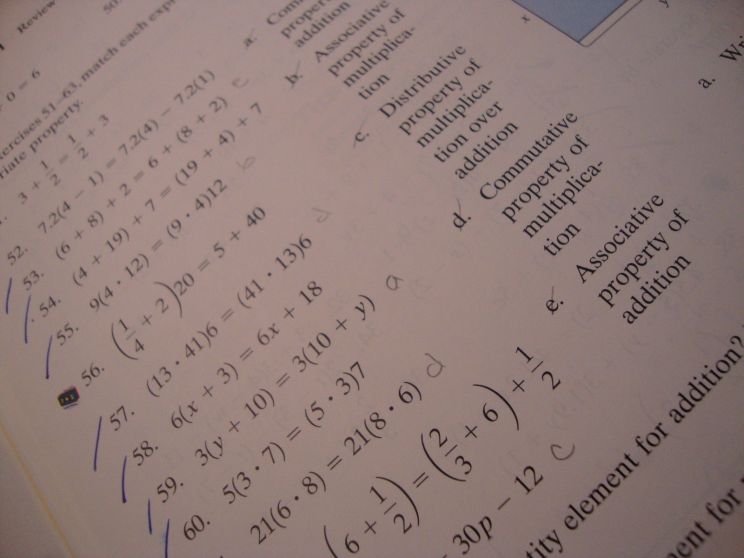 Review
50.
0 = 6
51–63, match each
property.
3 + 1/2 = 1/2 + 3
52. 7.2(4 − 1) = 7.2(4) − 7.2(1)
53. (6 + 8) + 2 = 6 + (8 + 2) e
54. (4 + 19) + 7 = (19 + 4) + 7
55. 9(4 · 12) = (9 · 4)12 b
56. (1/4 + 2)20 = 5 + 40
57. (13 · 41)6 = (41 · 13)6 d
58. 6(x + 3) = 6x + 18
59. 3(y + 10) = 3(10 + y) a
60. 5(3 · 7) = (5 · 3)7
21(6 · 8) = 21(8 · 6) d
(6 + 1/2) = (2/3 + 6) + 1/2
30p − 12 c
a.
addition
b. Associative
property of
multiplica-
tion
c. Distributive
property of
multiplica-
tion over
addition
d. Commutative
property of
multiplica-
tion
e. Associative
property of
addition
element for addition?
for
x
y
a.